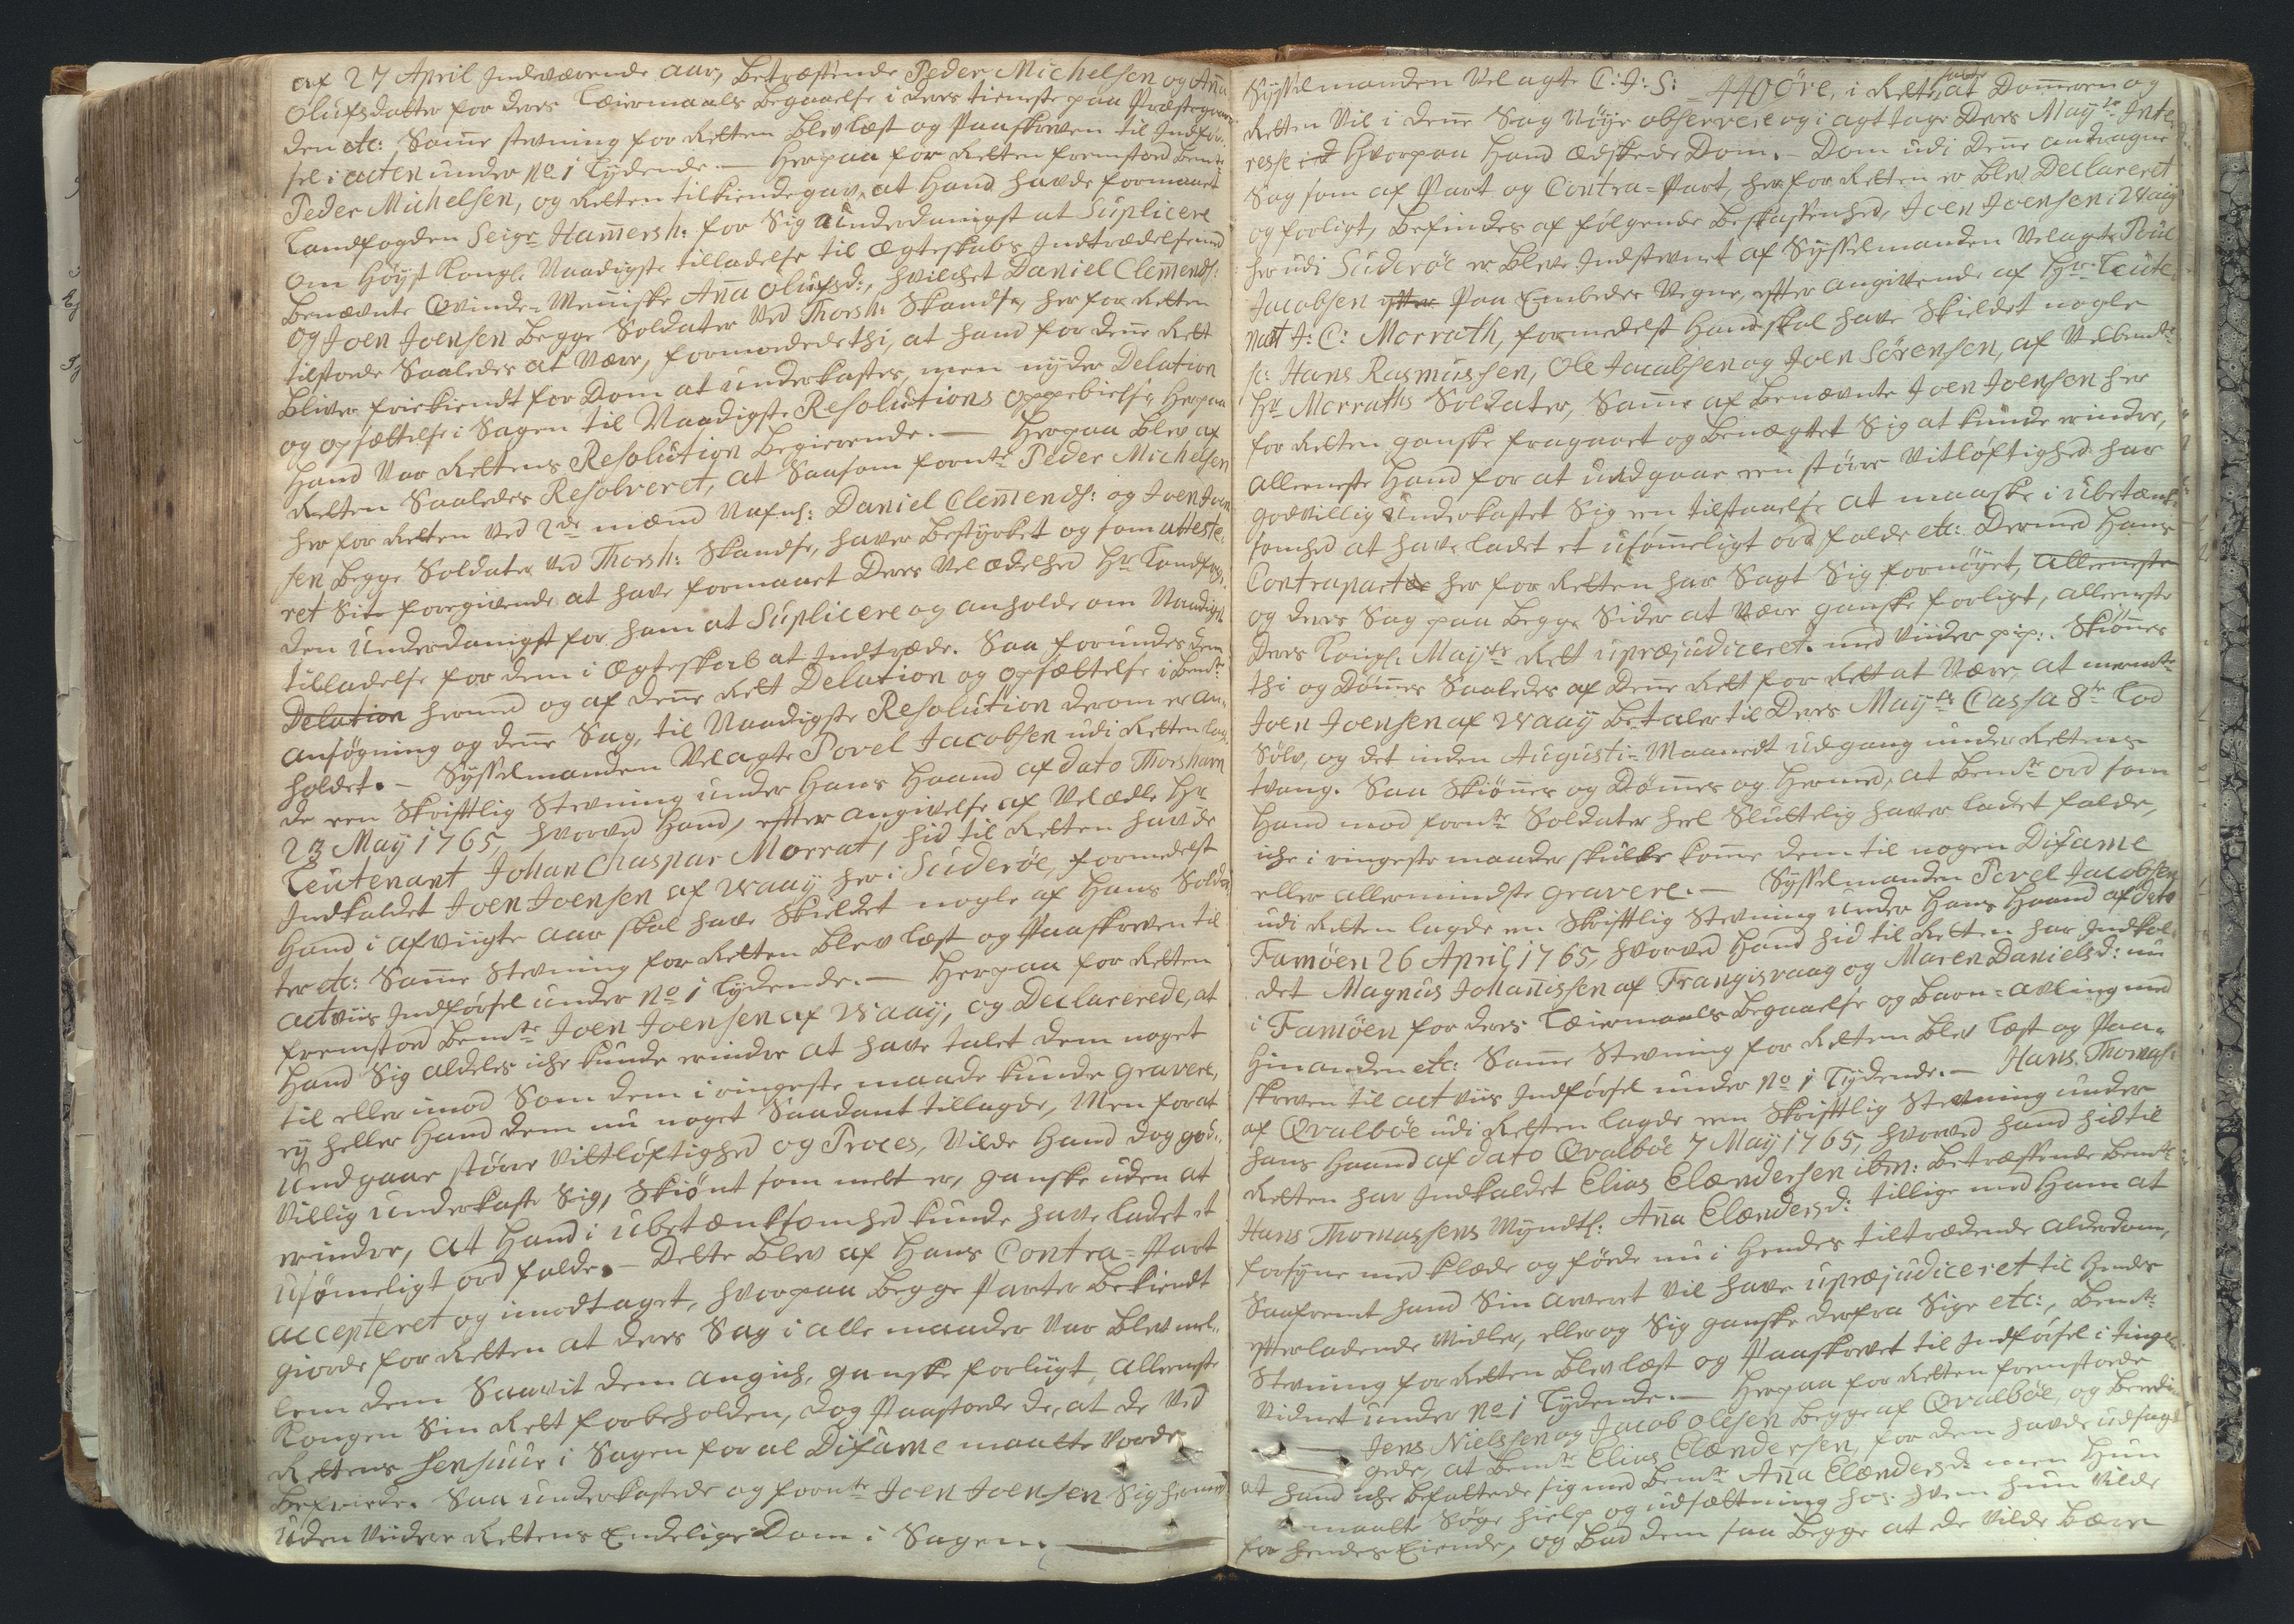 af 27 April Indeværende aar, betræffende Peder Michelsen og Anna
Olufsdatter for deres Leiermaals begaaelse i deres tieneste paa Præstegaar-
den etc: Samme stevning for Retten blev læst og Paaskreven til Indfør-
sel i acten under No 1 Lydende. — Herpaa for Retten fremstod bemte
Peder Michelsen, og Retten tilkiendegav, at hand havde formaaet
Landfogden Seigr Hamersh: for Sig underdanigst at Suplicere
om Høyst Kongl. Naadigste tilladelse til Ægteskabs Indtrædelse med
benævnte Qvinde-Menniske Anna Olufsd:, hvilchet Daniel Clemends:
og Joen Joensen begge Soldater ved Thorsh: Skandse, her for Retten
tilstode Saaledes at være, formodede thi, at hand for denne Rett
bliver friekiendt for Dom at underkastes, men nyder Delation
og opsættelse i Sagen til Naadigste Resolutions oppebielse, herpaa
hand var Rettens Resolution begierende. — Herpaa blev af
Retten Saaledes Resolveret, at Saasom fornte Peder Michelsen
her for Retten ved 2de mænd Nafnl: Daniel Clemends: og Joen Joen-
sen begge Soldater ved Thorsh: Skandse, haver bestyrket og som atteste-
ret Sit foregivende at have formaaet Deres Vel ædelhed Hr Landfog-
den underdanigst for ham at Suplicere og anholde om Naadigst
tilladelse for dem i Ægteskab at Indtræde. Saa forundes dem
Delation hermed og af denne Rett Delation og opsættelse i bemte
ansøgning og denne Sag, til Naadigste Resolution derom er an-
holdet. — Sysselmanden Velagte Povel Jacobsen udi Retten lag-
de een Skrifttlig Stevning under Hans Haand af dato Thorshavn
23 May 1765, hvorved Hand, effter angivelse af Vel ædle Hr
Leutenant Johan Chaspar Morrat, hid til Retten havde
Indkaldet Joen Joensen af Waaij her i Suderöe, formedelst
Hand i afvigte aar skal have Skieldet nogle af Hans Solda-
ter etc: Samme Stevning for Retten blev læst og Paaskreven til
actviis Indførsel under No 1 Lydende. — Herpaa for Retten
fremstod bemte Joen Joensen af Waaij, og Declarerede, at
Hand Sig aldeles iche kunde erindre at have talet dem noget
til eller imod Som dem i ringeste maade kunde gravere,
ey heller Hand dem nu noget Saadant tillagde, Men for at
undgaae større Vittløftighed og Proces, Vilde Hand dog god-
villig underkaste Sig, Skiönt som melt er, ganske uden at
erindre, at Hand i ubetænksomhed kunde have ladet et
usømeligt ord falde. — Dette blev af Hans Contra-Part
accepteret og imodtaget, hvorpaa begge Parter bekiendt
giorde for Retten at deres Sag i alle maader var blev mel-
lem dem Saavit dem angich, ganske forligt, alleeneste
Kongen Sin Rett forbeholden, dog Paastode de, at de ved
Rettens Sensuur i Sagen for al Difame maatte vorde
befriede. Saa underkastede og fornte Joen Joensen Sig hermed
uden viidere Rettens Endelige Dom i Sagen. —
Sysselmanden Velagte C: J: S: 440 öre, i Rette lagde at Dommeren og
Retten Vil i denne Sag Nøye observere og i agt tage Deres Mayts Inte-
resse id Hvorpaa Hand ædskede Dom. — Dom udi denne andragne
Sag som af Part og Contra-Part, her for Retten er blev Declareret
og forligt, befindes af følgende beskaffenhed, Joen Joensen i Waaij
her udi Suderöe er bleve Indstevnet af Sysselmanden Velagte Poul
Jacobsen effter Paa Embedes Vegne, effter angivende af Hr Leute-
nant J: C: Morrath, formedelst Hand skal have Skieldet nogle
sc: Hans Rasmussen, Ole Jacobsen og Joen Sörensen, af Velbemte
Hr Morraths Soldater, Samme af benævnte Joen Joensen her
for Retten ganske fragaaet og benægtet Sig at kunde erindre,
alleeneste Hand for at undgaae een större Vitløftighed har
godvillig underkastet Sig een tilstaaelse at maaske i ubetænk-
somhed at have ladet et usømmeligt ord falde etc: Dermed Hans
Contraparter her for Retten har Sagt Sig fornöyet, alleeneste
og deres Sag paa begge Sider at være ganske forligt, alleeneste
Deres Kongl. Mayts Rett upræjudiceret. med viider pip:. Skiønnes
thi og Dømmes Saaledes af denne Rett for Rett at være, at meermte
Joen Joensen af Waaij betaler til Deres Mayts Cassa 8te Lod
Sölv, og det inden Augusti-Maanedt udgang under Rettens
tvang. Saa Skiønnes og Dømmes og hermed, at bemte ord som
Hand mod fornte Soldater heel Sluttelig haver ladet falde,
iche i ringeste maader skulle komme dem til nogen Difame
eller allermindste gravere. — Sysselmanden Povel Jacobsen
udi Retten lagde en Skrifttlig Stevning under Hans Haand af dato
Famöen 26 April 1765, hvorved Hand hid til Retten har Indkal-
det Magnus Johannissen af Frangisvaag og Maren Danielsd: nu
i Famöen for deres Leiermaals begaaelse og barn-avling med
hinanden etc: Samme Stevning for Retten blev læst og Paa-
skreven til actviis Indførsel under No 1 Lydende. — Hans Thomas:
af Qvalböe udi Retten lagde een Skrifttlig Stevning under
hans Haand af dato Qvalböe 7 May 1765, hvorved hand hid til
Retten har Indkaldet Elias Elændersen ibm: betræffende bemte
Hans Thomassens Myndtl: Anna Elændersd: tillige med ham at
forsyne med klæde og føde nu i Hendes tiltrædende alderdom,
Saafremt hand Sin arveret Vil have upræjudiceret til Hendes
effterladende Midler, eller og Sig ganske derfra Sige etc:, bemte
Stevning for Retten blev læst og Paaskrevet til Indførsel i tinge-
vidnet under No 1 Lydende. — Herpaa for Retten fremstode
Jens Nielssen og Jacob Olesen begge af Qvalböe, og beedi-
gede, at bemte Elias Elændersen, for dem havde udsagt
at hand iche befattede sig med bemte Anna Elændersd: men Hun
maatte Søge hielp og udsættning hos hvem hun Vilde
for hendes Eiende, og bad dem saa begge at de Vilde bære